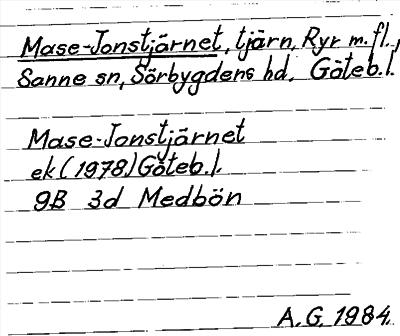 Mase-Jonstjärnet, tjärn, Ryr m.fl.,
Sanne sn, Sörbygdens hd, Göteb.l.
Mase-Jonstjärnet
ek (1978) Göteb.l.
9B 3d Medbön
A.G. 1984.